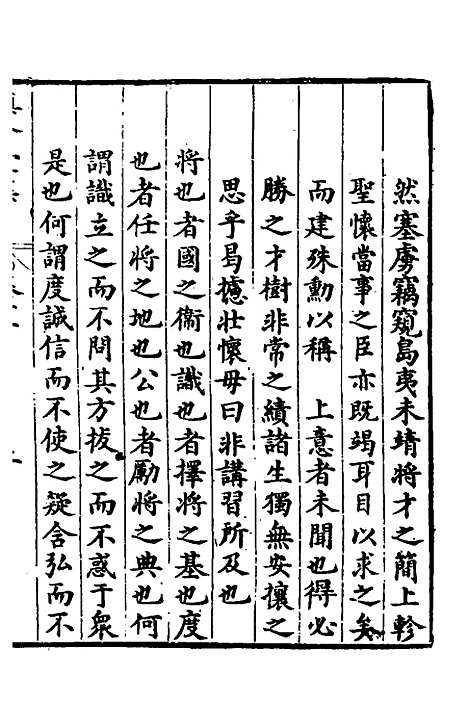 然塞虜竊窺島夷未靖將才之簡上軫
聖懷當事之臣亦既竭耳目以求之矣
而建殊勳以稱 上意者未聞也得必
勝之才樹非常之績諸生獨無安攘之
思乎曷攄壯懷毋曰非講習所及也
將也者國之衞也識也者擇將之基也度
也者任將之地也公也者勵將之典也何
謂識立之而不問其方拔之而不惑于衆
是也何謂度誠信而不使之疑含弘而不